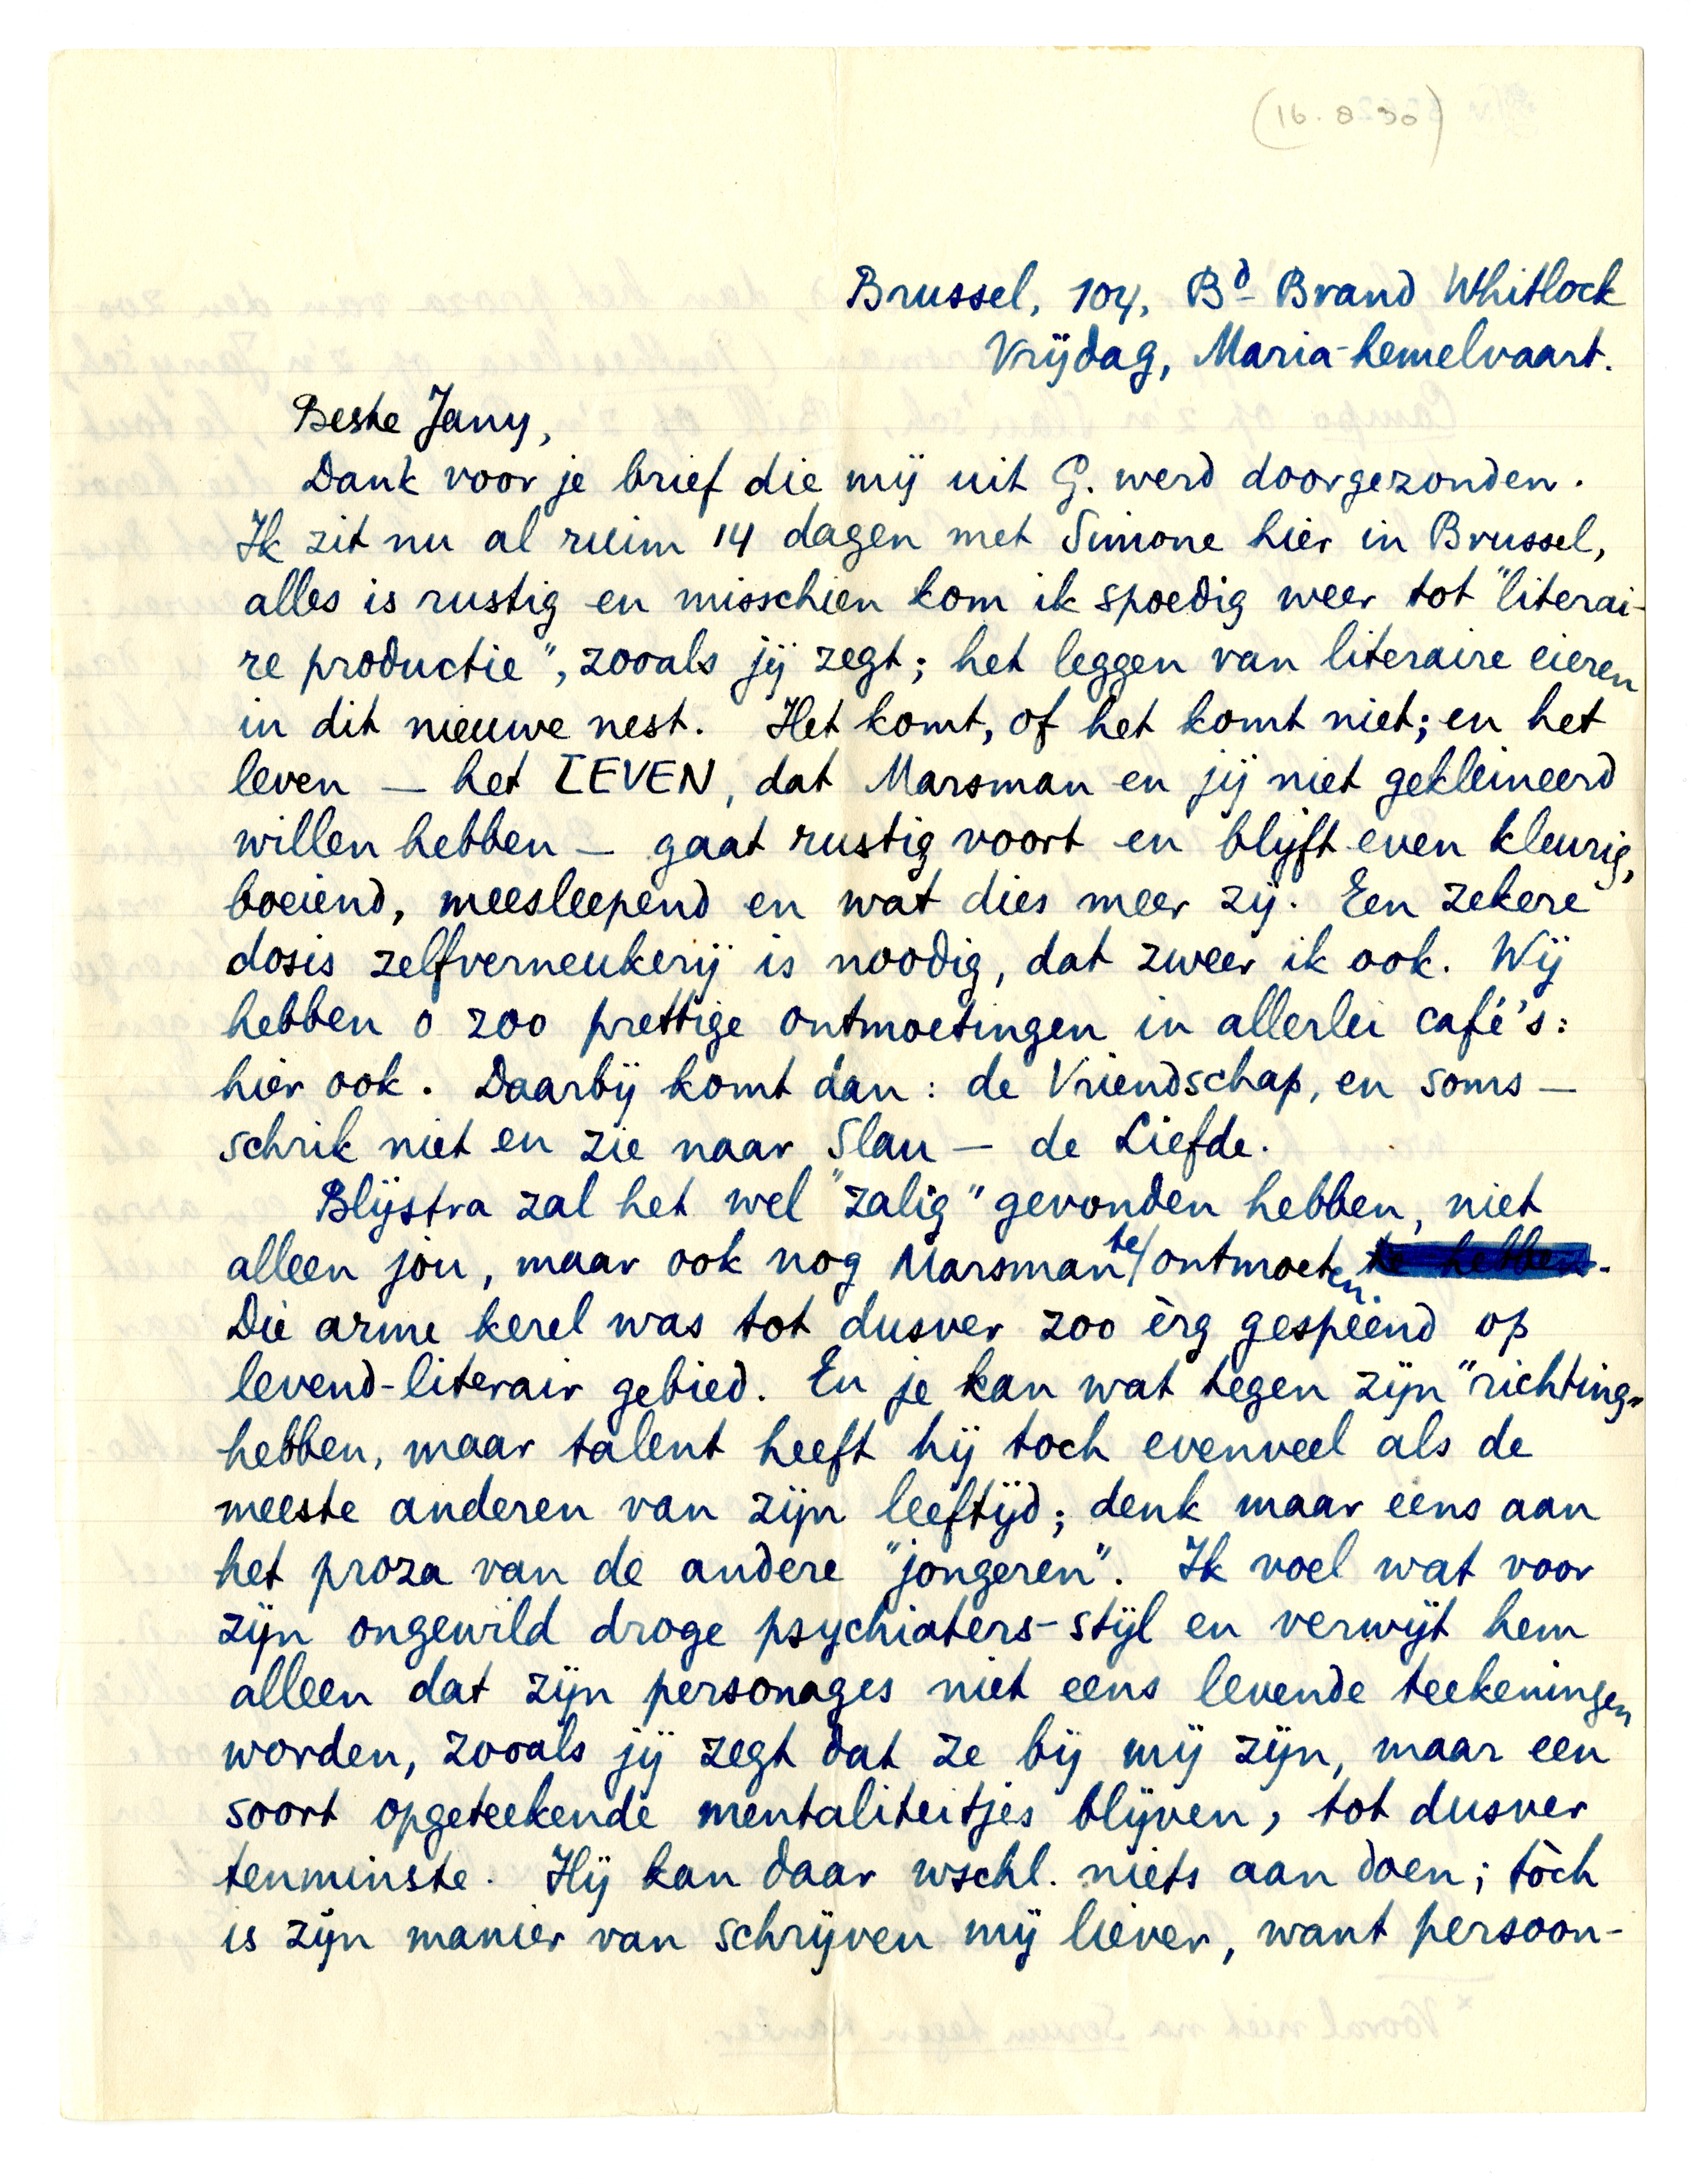 (16.8.30)
Brussel, 104, Bd Brand Whitlock
Vrijdag, Maria-hemelvaart.
Beste Jany,
Dank voor je brief die mij uit G. werd doorgezonden.
Ik zit nu al ruim 14 dagen met Simone hier in Brussel,
alles is rustig en misschien kom ik spoedig weer tot "literai-
re productie", zooals jij zegt; het leggen van literaire eieren
in dit nieuwe nest. Het komt, of het komt niet; en het
leven — het LEVEN, dat Marsman en jij niet gekleineerd
willen hebben — gaat rustig voort en blijft even kleurig,
boeiend, meesleepend en wat dies meer zij. Een zekere
dosis zelfverneukerij is noodig, dat zweer ik ook. Wij
hebben o zoo prettige ontmoetingen in allerlei café's:
hier ook. Daarbij komt dan: de Vriendschap, en soms —
schrik niet en zie naar Slau — de Liefde.
Blijstra zal het wel "zalig" gevonden hebben, niet
alleen jou, maar ook nog Marsman te ontmoeten te hebben.
Die arme kerel was tot dusver zoo èrg gespeend op
levend-literair gebied. En je kan wat tegen zijn "richting"
hebben, maar talent heeft hij toch evenveel als de
meeste anderen van zijn leeftijd; denk maar eens aan
het proza van de andere "jongeren". Ik voel wat voor
zijn ongewild droge psychiaters-stijl en verwijt hem
alleen dat zijn personages niet eens levende teekeningen
worden, zooals jij zegt dat ze bij mij zijn, maar een
soort opgeteekende mentaliteitjes blijven, tot dusver
tenminste. Hij kan daar wschl. niets aan doen; tòch
is zijn manier van schrijven mij liever, want persoon-